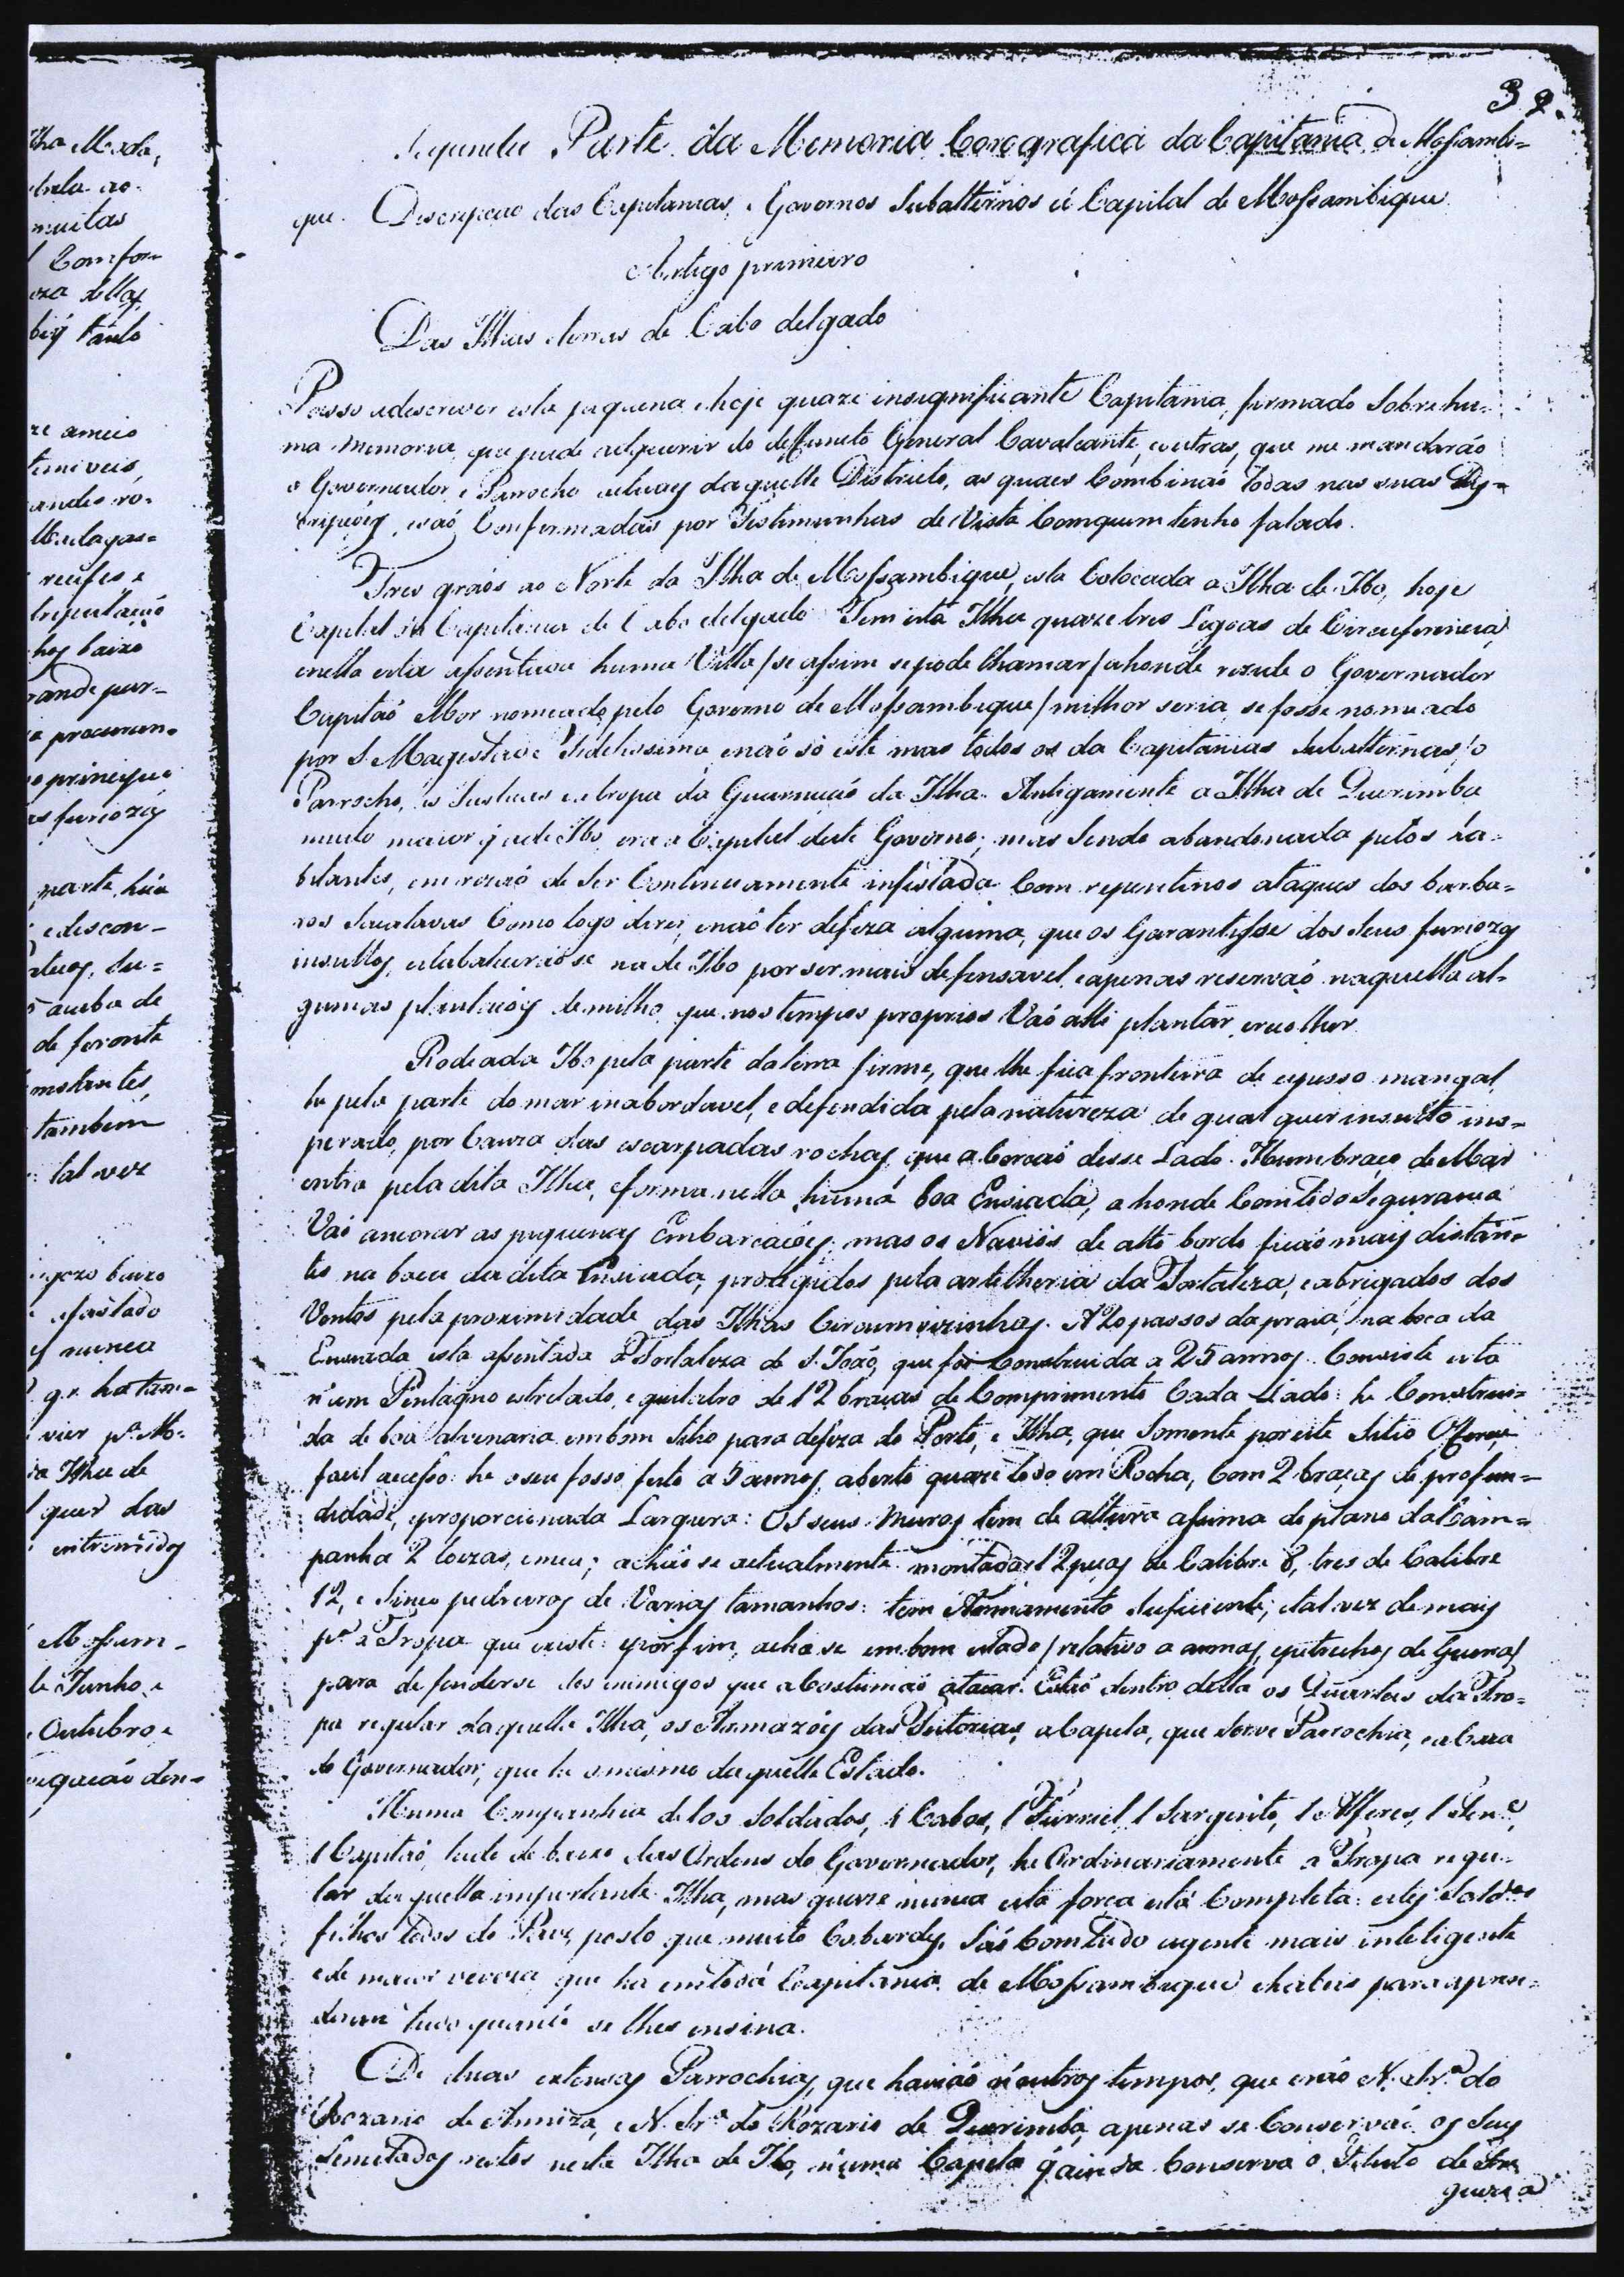 32.
Segunda Parte da Memoria Corografica da Capitania de Mossambi=
que. Descripçaõ das Capitanias, e Governos Subalternos á Capital de Mossambique
Artigo primeiro
Das Ilhas e terras de Cabo delgado
Passo a descrever esta pequena, e hoje quaze insignificante Capitania, firmado Sobre hu=
ma memoria, que pude adquerir do deffuncto General Cavalcante, e outras, que me mandarão
o Governador, e Parrocho actuaes daquelle Districto, as quaes Combinaõ todas nas suas Des=
cripçoẽs, e saõ Confirmadas por Testimunhas de Vista Com quem tenho falado.
Tres gráos ao Norte da Ilha de Mossambique, esta Colocada a Ilha de Ibo, hoje
Capital da Capitania de Cabo delgado. Tem esta Ilha quaze tres Legoas de Circuferencia,
e nella esta assentada huma Villa / se assim se pode Chamar / ahonde rezide o Governador
Capitaõ Mor nomeado pelo Governo de Mossambique / milhor seria, se fosse nomeado
por S. Magestade Fidelissima, e naõ só este mas todos os da Capitanias Subalternas / o
Parrocho, as Justicas e a tropa da Guarniçaõ da Ilha. Antigamente a Ilha de Querimba
muito maior q̃ a de Ibo, era a Capital deste Governo; mas Sendo abandonada pelos ha=
bitantes, em razaõ de Ser Continuamente infestada Com repentinos ataques dos barba=
ros Sacalavas Como logo direi, e naõ ter defeza alguma, que os Garantisse dos Seus furiozos
insultos, estabaleceraõse na de Ibo por ser mais defensavel, e apenas reservaõ naquella al=
gumas plantaçoẽs de milho, que nos tempos proprios Vaõ alli plantar, e recolher.
Rodeada Ibo pela parte da terra firme, que lhe fica fronteira de espesso mangal,
he pela parte do mar inabordavel, e defendida pela natureza de qual quer insulto ines=
perado, por Cauza das escarpadas rochas, que a Cercaõ desse Lado. Hum braço de Mar
entra pela dita Ilha, e forma nella huma boa Enseada, ahonde Com todo Seguranca
Vaõ ancorar as pequenas Embarcaçoẽs; mas os Navios de alto bordo ficaõ mais distan=
tes na boca da dita Enseada, protegidos pela artilheria da Fortaleza, e abrigados dos
Ventos pela proximidade das Ilhas Circumvizinhas. A 20 passos da praia, na boca da
Enseada esta assentada a Fortaleza de S. Joaõ, que foi Construida a 25 annos. Consiste esta
n'um Pentagno estrelado, e quilatro de 12 braças de Comprimento Cada Lado: he Construi=
da de boa alvenaria em bom Sitio para defeza do Porto, e Ilha, que Somente por este Sitio Offerece
facil accesso: he o seu fosso feito a 5 annos, aberto quaze todo em Rocha, Com 2 braças de profun=
didade, e proporcionada Largura: Os seus Muros tem de altura assima do plano da Cam=
panha 2 toezas, e meia; achaõ se actualmente montadas 12 peças de Calibre 8, tres de Calibre
12, e Sinco pedreiros de Varios tamanhos: tem Armamento Suficiente, e tal vez de mais
pª a Tropa que existe: e por fim, acha se em bom estado / relativo a armas, e petrechos de Guerra /
para defenderse dos inimigos que a Costumaõ atacar. Estaõ dentro della os Quarteis da Tro=
pa regular daquella Ilha, os Armazẽs das Feitorias, a Capela, que Serve Parrochia, e a Caza
do Governador, que he o mesmo daquelle Estado.
Huma Companhia de 100 Soldados, 4 Cabos, 1 Furriel, 1 Sargento, 1 Alferes, 1 Tenᵉ,
1 Capitaõ, tudo de baixo das Ordens do Governador, he Ordinariamente a Tropa regu=
lar daquella importante Ilha, mas quaze nunca esta força está Completa: estes Soldᵒˢ
filhos todos do Paiz, posto que muito Cobardes, Saõ Com tudo a gente mais inteligente
e de maior viveza que ha em toda Capitania de Mossambique, e habeis para apren=
derem tudo quanto se lhes ensina.
De duas extensas Parrochias, que haviaõ n'outros tempos, que eraõ N. Srª do
Rozario de Amniza, e N. Srª do Rozario de Querimba, apenas se Conservaõ os Seus
Limitados restos nesta Ilha de Ibo, n'uma Capela q̃ ainda Conserva o Titulo de Fre
guezia
Comfor=
tanto
muitas
recifes e
rande par=
a procuran=
furiozos
parte, hũa
e descon=
acaba de
de fronte
tambem
tal vez
nunca
vier pª Mo=
a Ilha de
quer das
Mossam=
de Junho, e
Outubro e